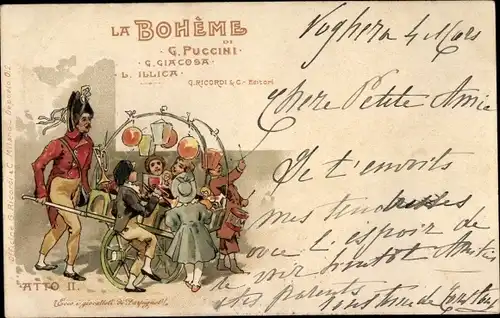 LA BOHÈME
DI
G. PUCCINI
G. GIACOSA
L. ILLICA
G. RICORDI & C. - Editori
Voghera 4 Mars
Chere Petite Amie
Je t'envoits
mes tendresses
avec l'espoir de
te voir bientôt
tes parents
ATTO II.
(Ecco i giocattoli di Parpignol!)
Officine G. Ricordi & C. Milano